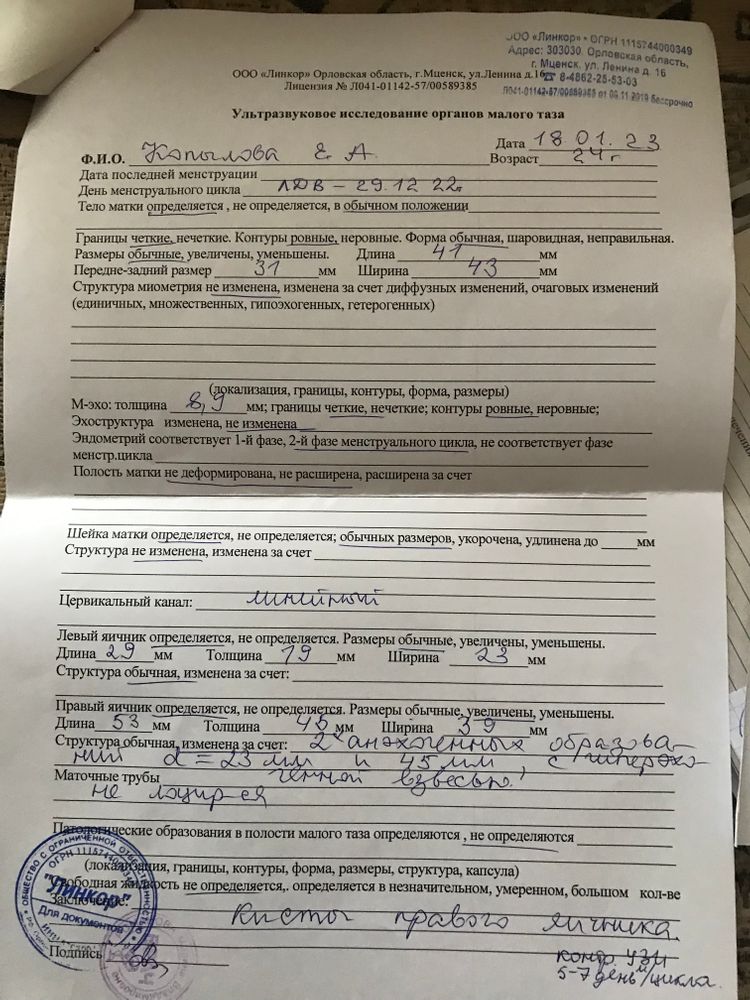 ООО «Линкор» • ОГРН 1115744000349
Адрес: 303030. Орловская область,
г. Мценск, ул. Ленина д. 16
☎ 8-4862-25-53-03
Л041-01142-57/00589385 от 09.11.2019 бессрочно
ООО «Линкор» Орловская область, г.Мценск, ул.Ленина д.16
Лицензия № Л041-01142-57/00589385
Ультразвуковое исследование органов малого таза
Дата 18.01.23
Ф.И.О. Копылова Е. А. Возраст 24 г
Дата последней менструации
День менструального цикла ПДВ – 29.12 22г
Тело матки определяется , не определяется, в обычном положении
Границы четкие, нечеткие. Контуры ровные, неровные. Форма обычная, шаровидная, неправильная.
Размеры обычные, увеличены, уменьшены. Длина 41 мм
Передне-задний размер 31 мм Ширина 43 мм
Структура миометрия не изменена, изменена за счет диффузных изменений, очаговых изменений
(единичных, множественных, гипоэхогенных, гетерогенных)
(локализация, границы, контуры, форма, размеры)
М-эхо: толщина 8,9 мм; границы четкие, нечеткие; контуры ровные, неровные;
Эхоструктура изменена, не изменена
Эндометрий соответствует 1-й фазе, 2-й фазе менструального цикла, не соответствует фазе
менстр.цикла
Полость матки не деформирована, не расширена, расширена за счет
Шейка матки определяется, не определяется; обычных размеров, укорочена, удлинена до мм
Структура не изменена, изменена за счет
Цервикальный канал: линейный
Левый яичник определяется, не определяется. Размеры обычные, увеличены, уменьшены.
Длина 29 мм Толщина 19 мм Ширина 23 мм
Структура обычная, изменена за счет:
Правый яичник определяется, не определяется. Размеры обычные, увеличены, уменьшены.
Длина 53 мм Толщина 45 мм Ширина 39 мм
Структура обычная, изменена за счет: 2х анэхогенных образова-
ний d = 23 мм и 45 мм, с гиперэхо-
Маточные трубы генной взвесью.
не лоцир-ся
Патологические образования в полости малого таза определяются , не определяются
(локализация, границы, контуры, форма, размеры, структура, капсула)
Свободная жидкость не определяется,. определяется в незначительном, умеренном, большом кол-ве
Заключение:
Кисты правого яичника.
Подпись
контр. УЗИ
5-7 день м/цикла.
ОБЩЕСТВО С ОГРАНИЧЕННОЙ ОТВЕТСТВЕННОСТЬЮ
"Линкор"
Для документов